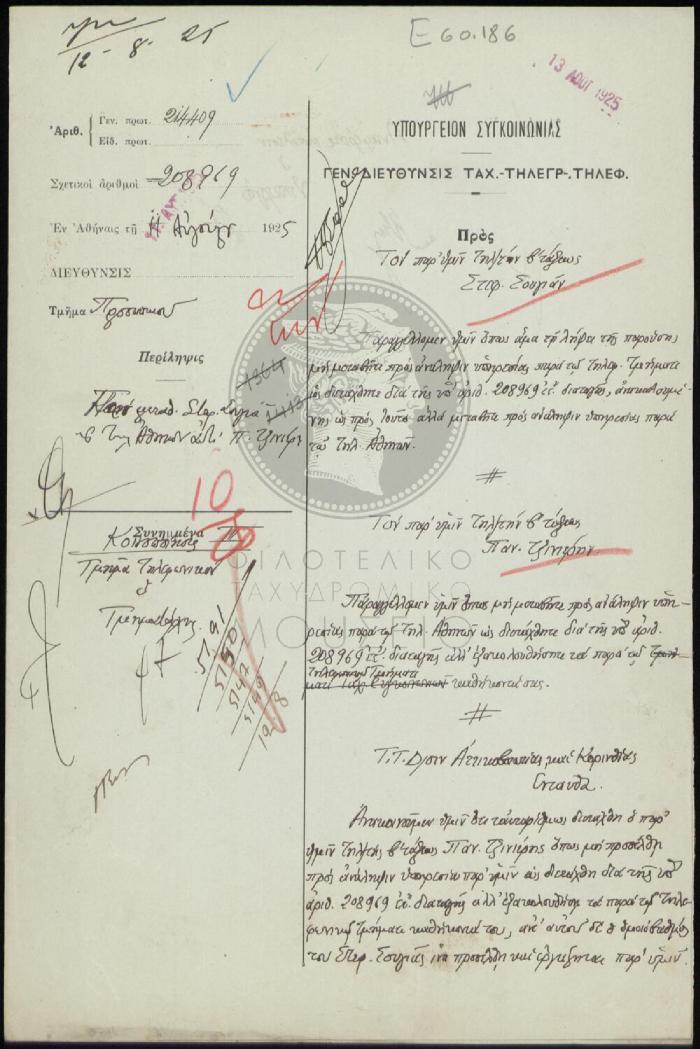 12 - 8 - 25
E60.186
13 ΑΥΓ 1925
Ἀριθ.
Γεν. πρωτ. 214409
Εἰδ. πρωτ.
Σχετικοὶ ἀριθμοὶ 208969
Ἐν Ἀθήναις τῇ 11 Αὐγούστ 1925
ΔΙΕΥΘΥΝΣΙΣ
Τμῆμα Προσωπικοῦ
Περίληψις
Περὶ μεταθ. Στεφ. Σουγιᾶ
Τηλ. Ἀθηνῶν ἀντὶ Π. Τζινιέρη
10
Συνημμένα
Κοινοποίησις
Τμῆμα Τηλεφωνικὸν
5191
5190
5147
5149
ΥΠΟΥΡΓΕΙΟΝ ΣΥΓΚΟΙΝΩΝΙΑΣ
ΓΕΝ. ΔΙΕΥΘΥΝΣΙΣ ΤΑΧ.-ΤΗΛΕΓΡ-.ΤΗΛΕΦ.
Πρὸς
Τὸν παρ' ὑμῖν Τηλ/τὴν β' τάξεως
Στεφ. Σουγιᾶν
Παραγγέλλομεν ὑμῖν ὅπως ἅμα τῇ λήψει τῆς παρούσης
μὴ μεταβῆτε πρὸς ἀνάληψιν ὑπηρεσίας παρὰ τῷ Τηλεφ. Τμήματι
ὡς διετάχθητε διὰ τῆς ὑπ' ἀριθ. 208969 ἐ.ἔ. διαταγῆς, ἀνακαλουμέ-
νης ὡς πρὸς τοῦτο ἀλλὰ μεταβῆτε πρὸς ἀνάληψιν ὑπηρεσίας παρὰ
τῷ Τηλ. Ἀθηνῶν.
#
Τὸν παρ' ὑμῖν Τηλ/τὴν β' τάξεως
Παν. Τζινιέρην
Παραγγέλλομεν ὑμῖν ὅπως μὴ μεταβῆτε πρὸς ἀνάληψιν ὑπη-
ρεσίας παρὰ τῷ Τηλ. Ἀθηνῶν ὡς διετάχθητε διὰ τῆς ὑπ' ἀριθ.
208969 ἐ.ἔ. διαταγῆς ἀλλ' ἐξακολουθήσητε τὰ παρὰ τῷ
Τηλεφωνικῷ Τμήματι
καθήκοντά σας.
#
Τ.Τ. Δ/σιν Ἀττικοβοιωτίας καὶ Κορινθίας
Ἐνταῦθα.
Ἀνακοινοῦμεν ὑμῖν ὅτι ταυταρίθμως διετάχθη ὁ παρ'
ὑμῖν Τηλ/τὴς β' τάξεως Παν. Τζινιέρης ὅπως μὴ προσέλθῃ
πρὸς ἀνάληψιν ὑπηρεσίας παρ' ὑμῖν ὡς διετάχθη διὰ τῆς ὑπ'
ἀριθ. 208969 ἐ.ἔ. διαταγῆς ἀλλ' ἐξακολουθήσῃ τὰ παρὰ τῷ Τηλε-
φωνικῷ Τμήματι καθήκοντά του, ἀντ' αὐτοῦ δὲ ὁ ὁμοιόβαθμός
του Στεφ. Σουγιᾶς ἵνα προσέλθῃ καὶ ἐργάζηται παρ' ὑμῖν.
ΦΙΛΟΤΕΛΙΚΟ
ΤΑΧΥΔΡΟΜΙΚΟ
ΜΟΥΣΕΙΟ